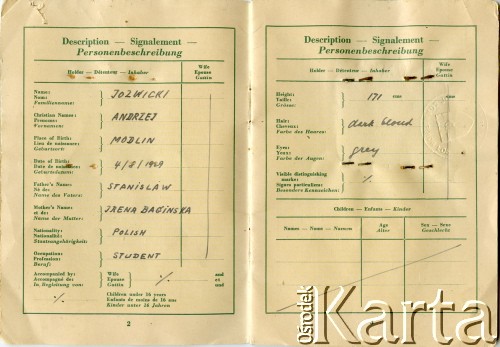 Description — Signalement —
Personenbeschreibung
Holder — Détenteur — Inhaber
Wife
Epouse
Gattin
Name:
Nom:
Familienname:
JOZWICKI
Christian Names:
Prenoms:
Vornamen:
ANDRZEJ
Place of Birth:
Lieu de naissance:
Geburtsort:
MODLIN
Date of Birth:
Date de naissance:
Geburtsdatum:
4/8/1929
Father's Name:
fil de:
Name des Vaters:
STANISLAW
Mother's Name:
et de:
Name der Mutter:
IRENA BAGINSKA
Nationality:
Nationalité:
Staatsangehörigkeit:
POLISH
Occupation:
Profession:
Beruf:
STUDENT
Accompanied by
Accompagné de
In Begleitung von
Wife
Epouse
Gattin
%
and
et
und
%
Children under 16 years
Enfants de moins de 16 ans
Kinder unter 16 Jahren
2
Description — Signalement —
Personenbeschreibung
Holder — Détenteur — Inhaber
Wife
Epouse
Gattin
Height:
Taille:
Grösse:
171 cms
cms
Hair:
Cheveux:
Farbe des Haares:
dark blond
Eyes:
Yeux:
Farbe der Augen:
grey
Visible distinguishing
marks:
Signes particuliers:
Besondere Kennzeichen:
%
Children — Enfants — Kinder
Names — Noms — Namen
Age
Alter
Sex — Sexe
Geschlecht
Ośrodek
Karta